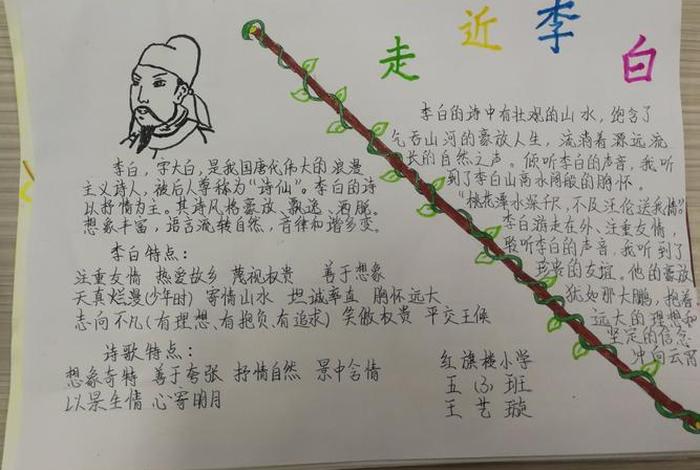 走近李白
李白，字大白，是我国唐代伟大的浪漫
主义诗人，被后人尊称为“诗仙”。李白的诗
以抒情为主。其诗风格豪放、飘逸、洒脱。
想象丰富，语言流转自然，音律和谐多变。
李白特点：
注重友情 热爱故乡 蔑视权贵 善于想象
天真烂漫(少年时) 寄情山水 坦诚率直 胸怀远大
志向不凡(有理想、有抱负、有追求) 笑傲权贵 平交王侯
诗歌特点：
想象奇特 善于夸张 抒情自然 景中含情
以景生情 心寄明月
李白的诗中有壮观的山水，饱含了
气吞山河的豪放人生，流淌着源远流
长的自然之声。倾听李白的声音，我听
到了李白山高水阔般的胸怀。
“桃花潭水深千尺，不及汪伦送我情”。
李白游走在外、注重友情，
聆听李白的声音，我听到了
珍贵的友谊。他的豪放
犹如那大鹏，抱着
远大的理想和
坚定的信念
冲向云霄
红旗楼小学
五（3）班
王艺璇